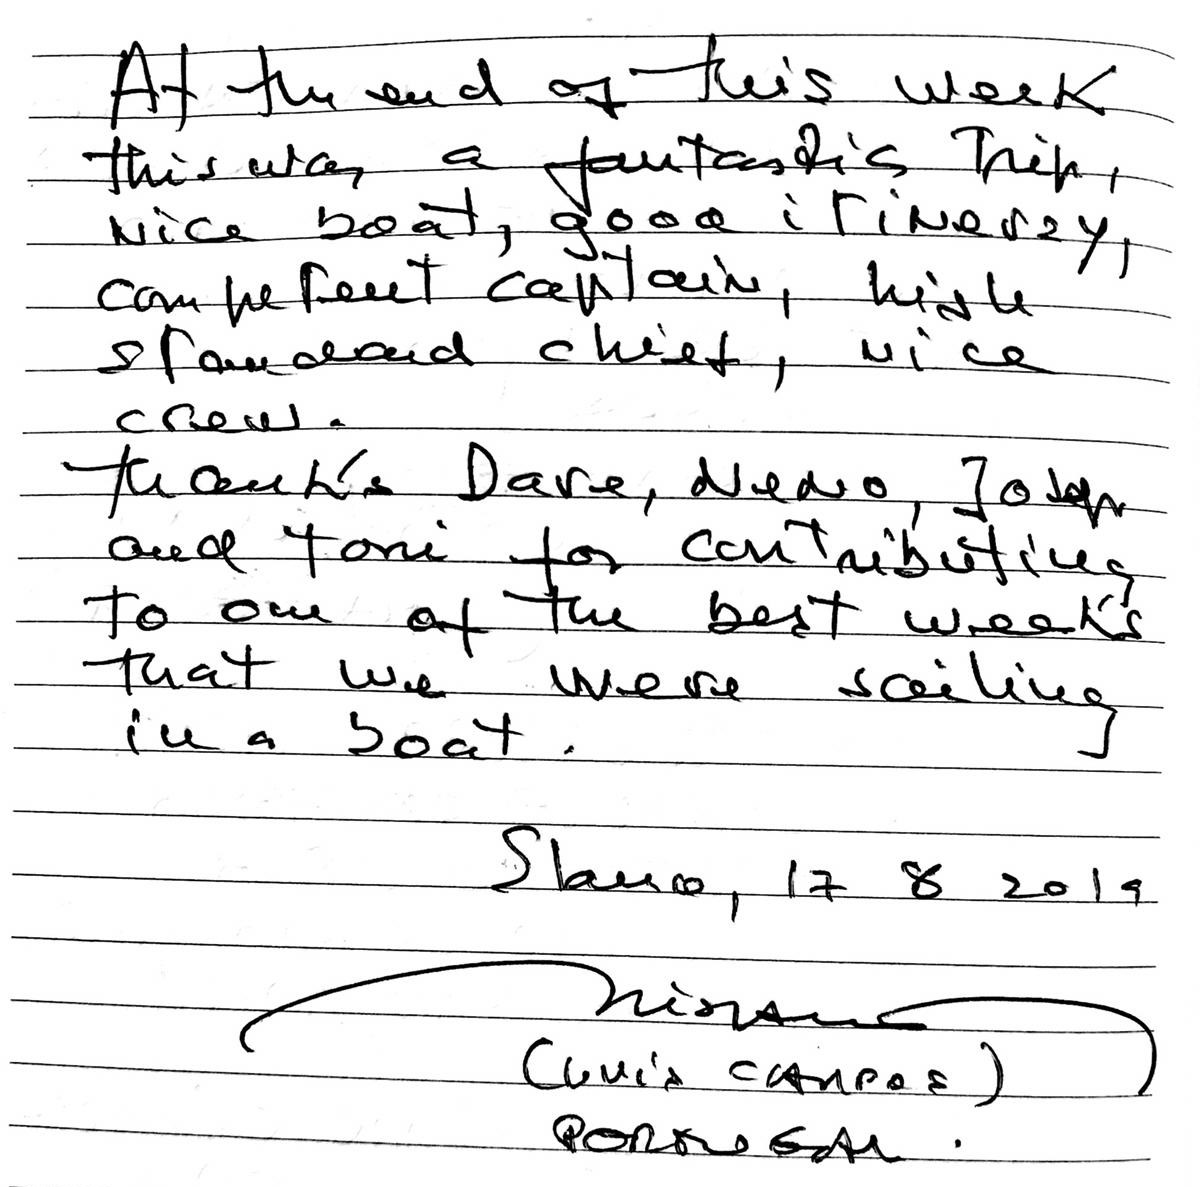 At the end of this week
this was a fantastic Trip,
Nice boat, good itinerary,
competent captain, high
standard chief, nice
crew.
thank's Dave, Neno, Josip
and Toni for contributing
To one of the best week's
that we were sailing
in a boat.
Slano, 17 8 2019
(Luis CAMPOS)
PORTUGAL.